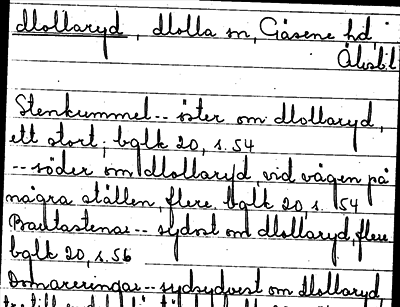 Mollaryd, Molla sn, Gäsene hd,
Älvsbl
Stenkummel -- öster om Mollaryd,
ett stort; bglk 20, s. 54
-- söder om Mollaryd, vid vägen på
några ställen, flere. bglk 20, s. 54
Bautastenar -- sydost om Mollaryd, flere
bglk 20, s. 56
Domareringar -- sydsydvest om Mollaryd,